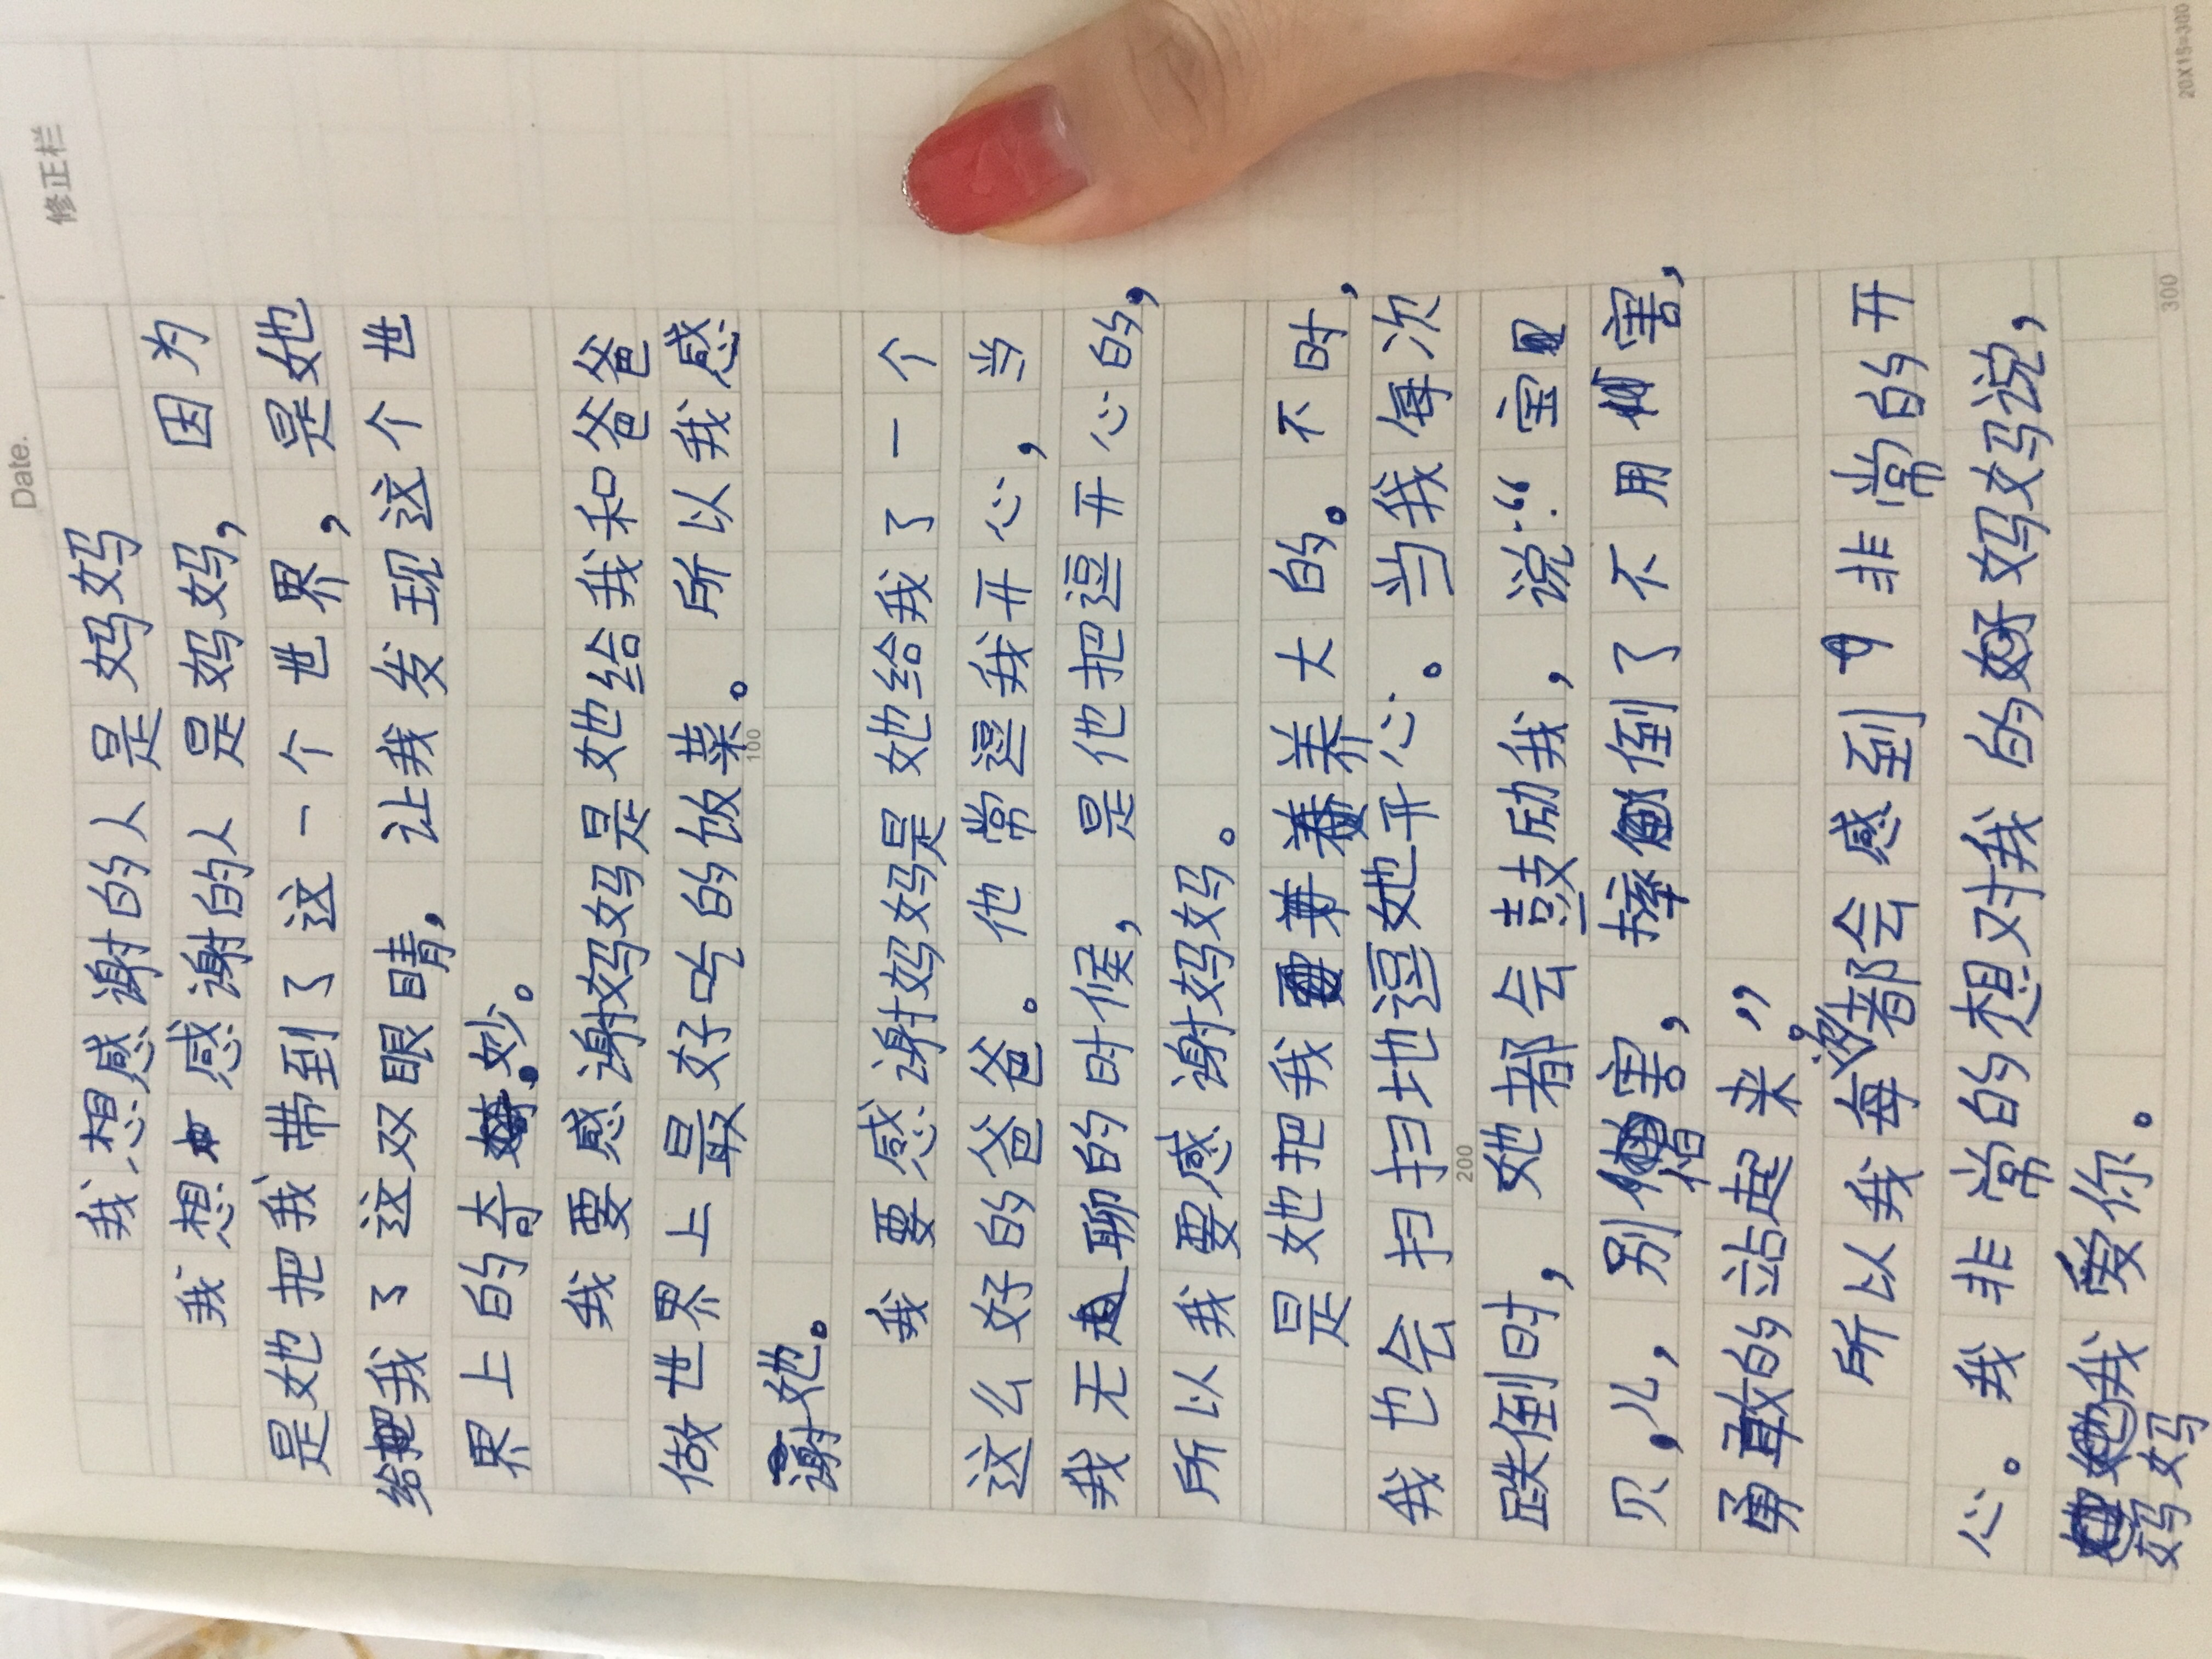 Date.
修正栏
我想感谢的人是妈妈
我想感谢的人是妈妈，因为
是她把我带到了这一个世界，是她
给我了这双眼睛，让我发现这个世
界上的奇妙。
我要感谢妈妈是她给我和爸爸
做世界上最好吃的饭菜。所以我感
100
谢她。
我要感谢妈妈是她给我了一个
这么好的爸爸。他常逗我开心，当
我无聊的时候，是他把逗开心的，
所以我要感谢妈妈。
是她把我养大的。不时，
我也会扫扫地逗她开心。当我每次
200
跌倒时，她都会鼓励我，说：“宝
贝儿，别害怕，摔倒了不用害，
勇敢的站起来。”
所以我每次都会感到非常的开
心。我非常的想对我的好妈妈说，
300
妈妈我爱你。
20X15=300